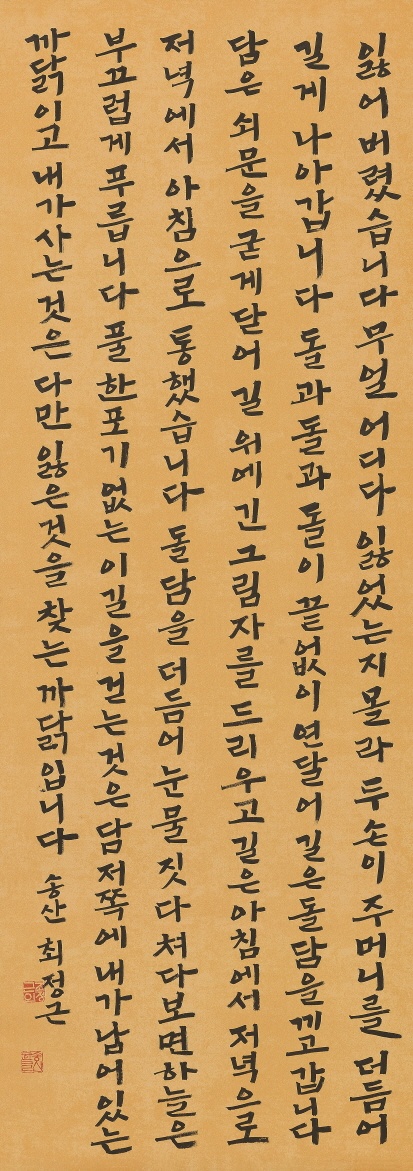 잃어버렸습니다 무얼 어디다 잃었는지 몰라 두 손이 주머니를 더듬어
길게 나아갑니다 돌과 돌과 돌이 끝없이 연달어 길은 돌담을 께고 갑니다
담은 쇠문을 굳게 달어 길 위에 긴 그림자를 드리우고 길은 아침에서 저녁으로
저녁에서 아침으로 통했습니다 돌담을 더듬어 눈물 짓다 쳐다보면 하늘은
부끄럽게 푸릅니다 풀 한포기 없는 이 길을 걷는것은 담 저쪽에 내가 남어있는
까닭이고 내가 사는 것은 다만 잃은것을 찾는 까닭입니다 송산 최정근